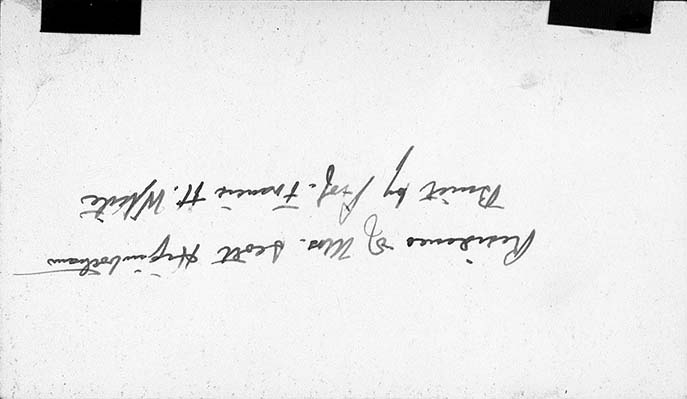 Residence of Mrs. Scott Higinbotham
Built by Prof. Francis H. White